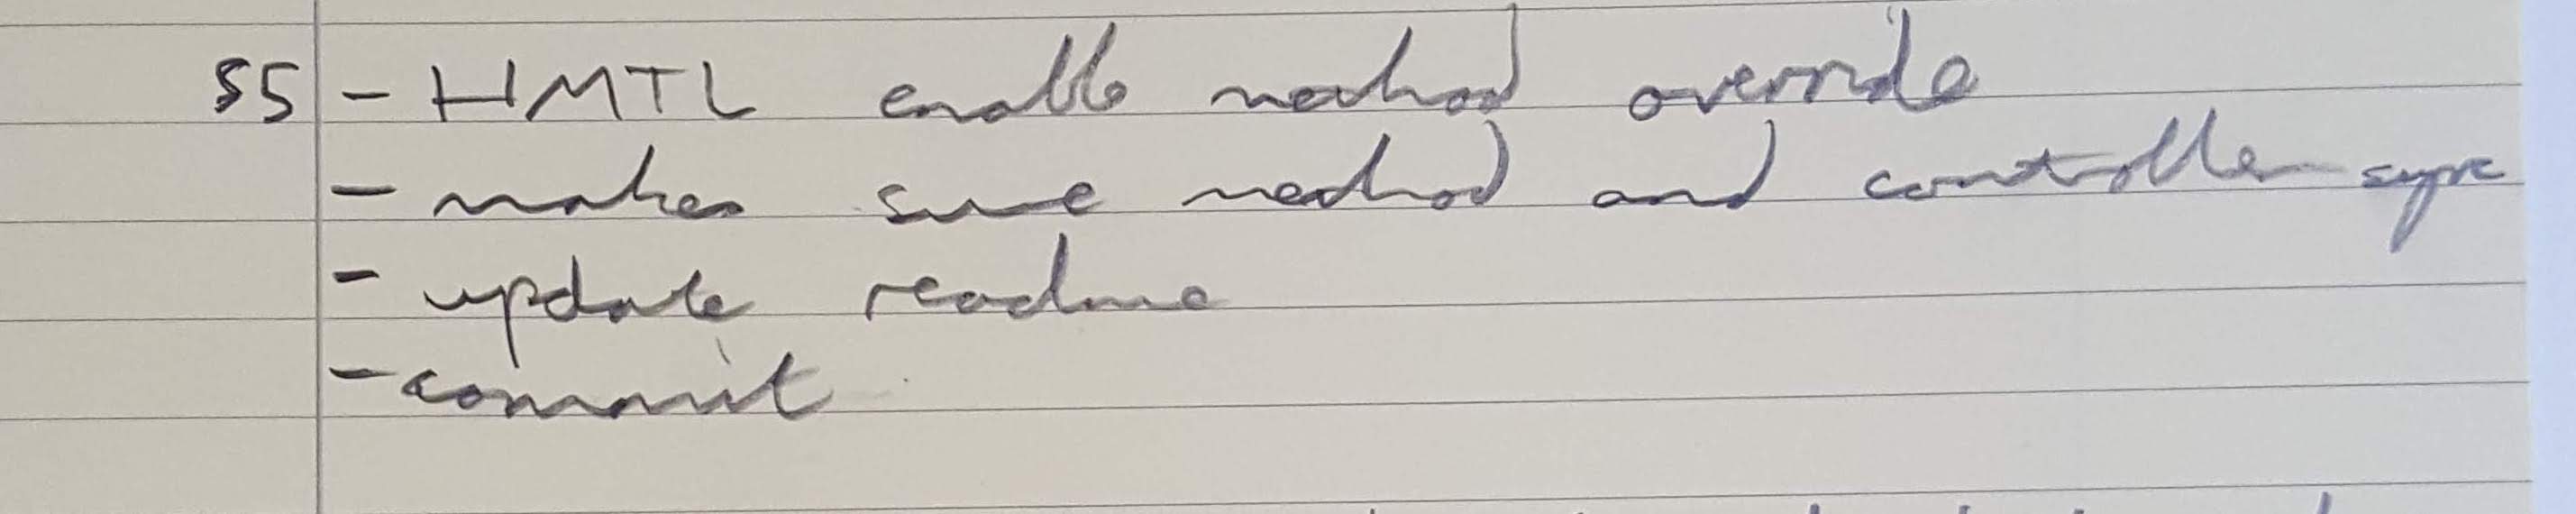 S5 - HMTL enable method override
- makes sure method and controller sync
- update readme
- commit